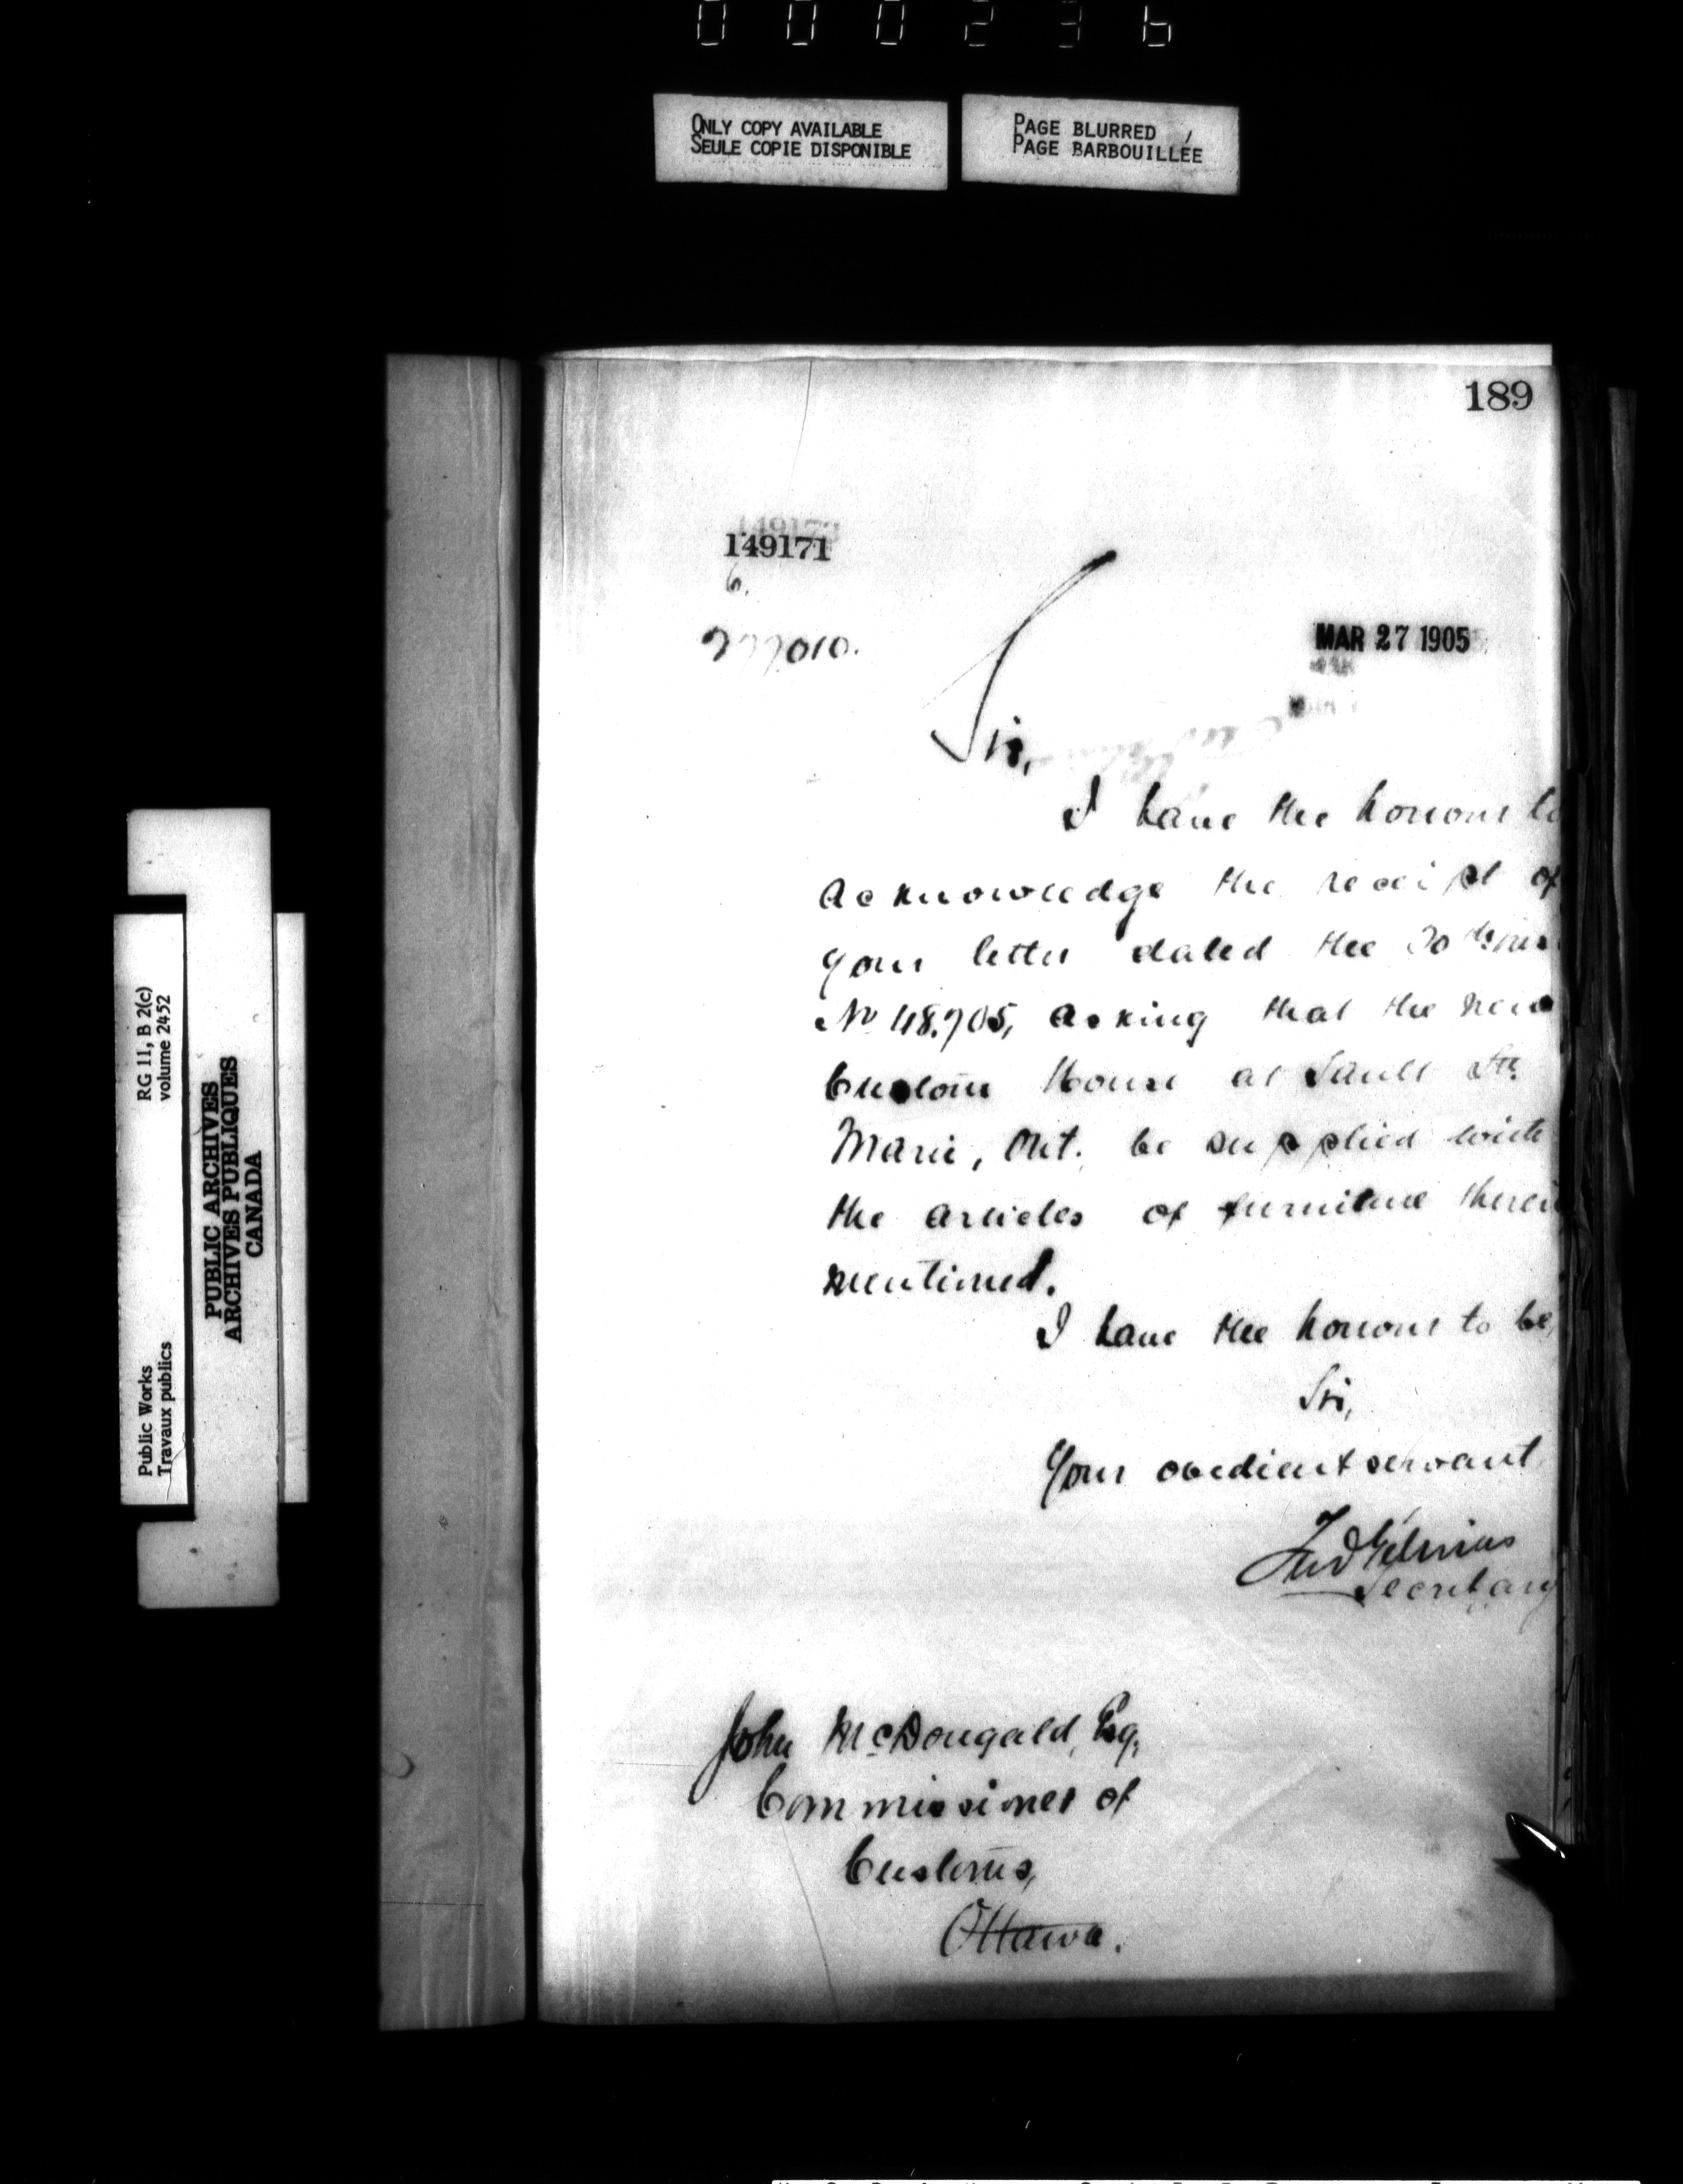 000236
ONLY COPY AVAILABLE
SEULE COPIE DISPONIBLE
PAGE BLURRED
PAGE BARBOUILLÉE
RG 11, B 2(c)
volume 2452
PUBLIC ARCHIVES
ARCHIVES PUBLIQUES
CANADA
Public Works
Travaux publics
189
149171
6.
277010.
MAR 27 1905
Sir,
I have the honour to
acknowledge the receipt of
your letter dated the
No 48.705, asking that the new
Custom House at Sault Ste.
Marie, Ont. be supplied with
the articles of furniture therein
mentioned.
I have the honour to be,
Sir,
Your obedient servant
Fred Gélinas
Secretary
John McDougald, Esq.
Commissioner of
Customs,
Ottawa.